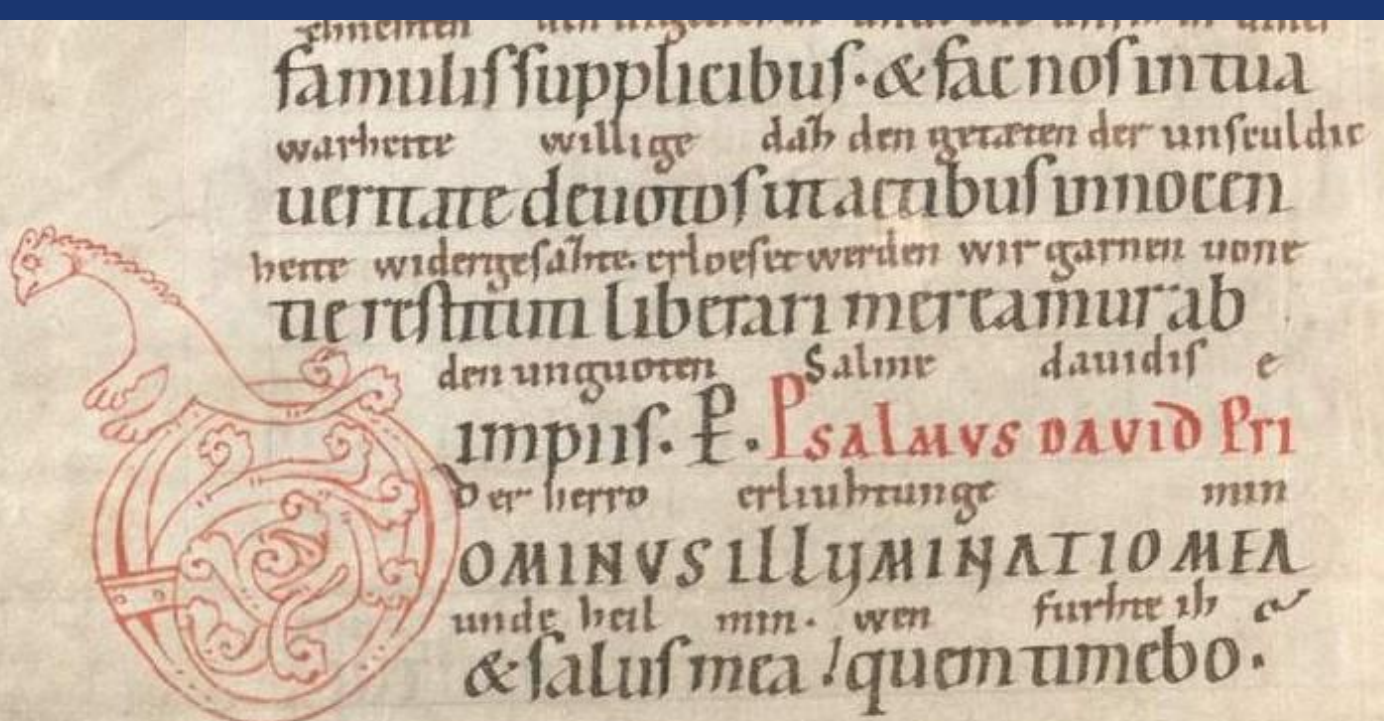 famuliſ ſupplicibuſ· & fac noſ in tua
warheite willige dah den getæten der unſculdic
ueritate deuotoſ in actibuſ innocen
heite widergeſahte. erloeſet werden wir garnen uone
tie reſtitutum liberari mereamur ab
den unguoten Salme dauidiſ e
impiiſ. P. PsalMVS DAVID Pri
Der herro erliuhtunge min
OMINVS ILLUMINATIO MEA
unde heil min. wen furhte ih
& ſaluſ mea! quem timebo.